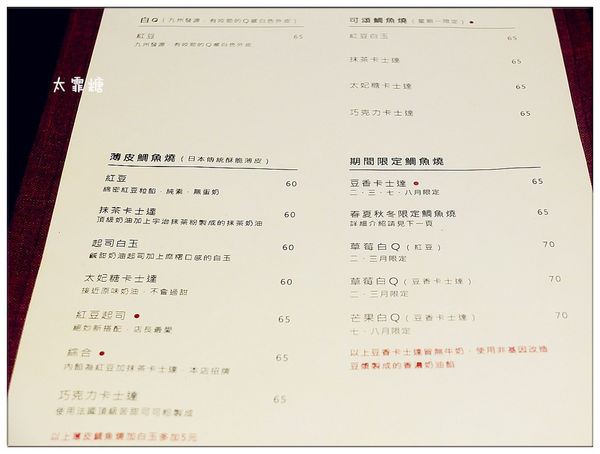 白Q（九州發源，有咬勁的Q軟白色外皮）
紅豆 65
九州發源，有咬勁的Q軟白色外皮
薄皮鯛魚燒（日本傳統酥脆薄皮）
紅豆 60
綿密紅豆粒餡，純素，無蛋奶
抹茶卡士達 60
頂級奶油加上宇治抹茶粉製成的抹茶奶油
起司白玉 60
鹹甜奶油起司加上麻糬口感的白玉
太妃糖卡士達 60
接近原味奶油，不會過甜
紅豆起司 65
絕妙新搭配，店長最愛
綜合 65
內餡為紅豆加抹茶卡士達，本店招牌
巧克力卡士達 65
使用法國頂級苦甜可可粉製成
以上薄皮鯛魚燒加白玉多加5元
可頌鯛魚燒（星期一限定）
紅豆白玉 65
抹茶卡士達 65
太妃糖卡士達 65
巧克力卡士達 65
期間限定鯛魚燒
豆香卡士達 65
二、三、七、八月限定
春夏秋冬限定鯛魚燒 65
詳細介紹請見下一頁
草莓白Q（紅豆） 70
二、三月限定
草莓白Q（豆香卡士達） 70
二、三月限定
芒果白Q（豆香卡士達） 70
七、八月限定
以上豆香卡士達皆無牛奶，使用非基因改造
豆漿製成的香濃奶油餡
太霏糖